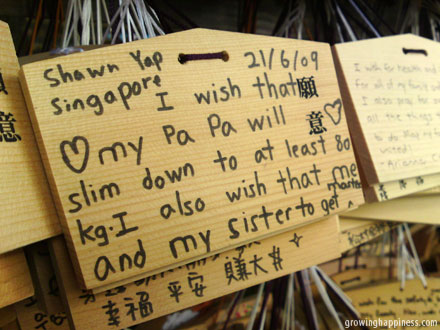 Shawn Yap 21/6/09
Singapore
I wish that
my Pa Pa will
slim down to at least 80
kg. I also wish that me
and my sister to get
願意
意
幸福 平安 賺大
I wish for health and
For all of my
I also pray for
all the things
united!
growinghappiness.com